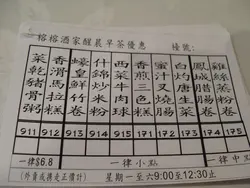 榕榕酒家醒晨早茶優惠 檯號:
菜乾豬骨粥
香滑馬拉糕
蠔皇鮮竹卷
什錦炒米粉
西菜牛肉球
香煎三色糕
蜜汁叉燒腸
白灼唐生菜
鳳城腊腸卷
雞絲蒸粉卷
911 912 913 914 915 171 172 173 174 175
一律$6.8 一律小點 一律中
(外賣或攜走正價計) 星期一至六9:00至12:30止